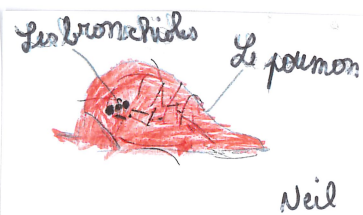 Les bronchioles
Le poumon
Neil